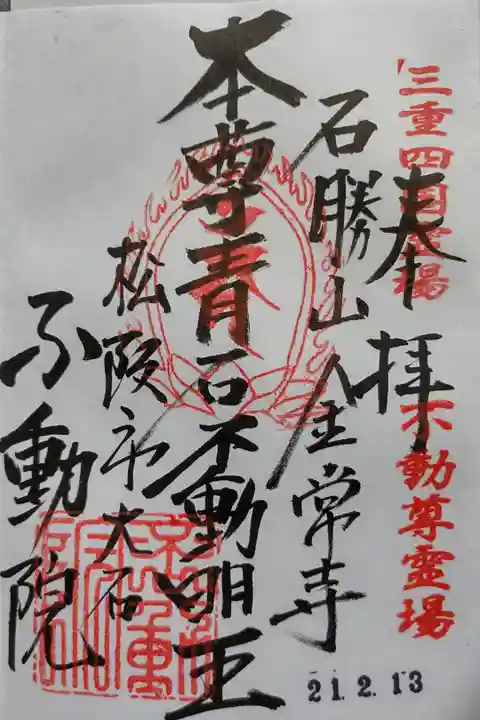 三重四国霊場 不動尊霊場
奉拝
石勝山金常寺
本尊青石不動明王
松阪市大石
不動院
21.2.13